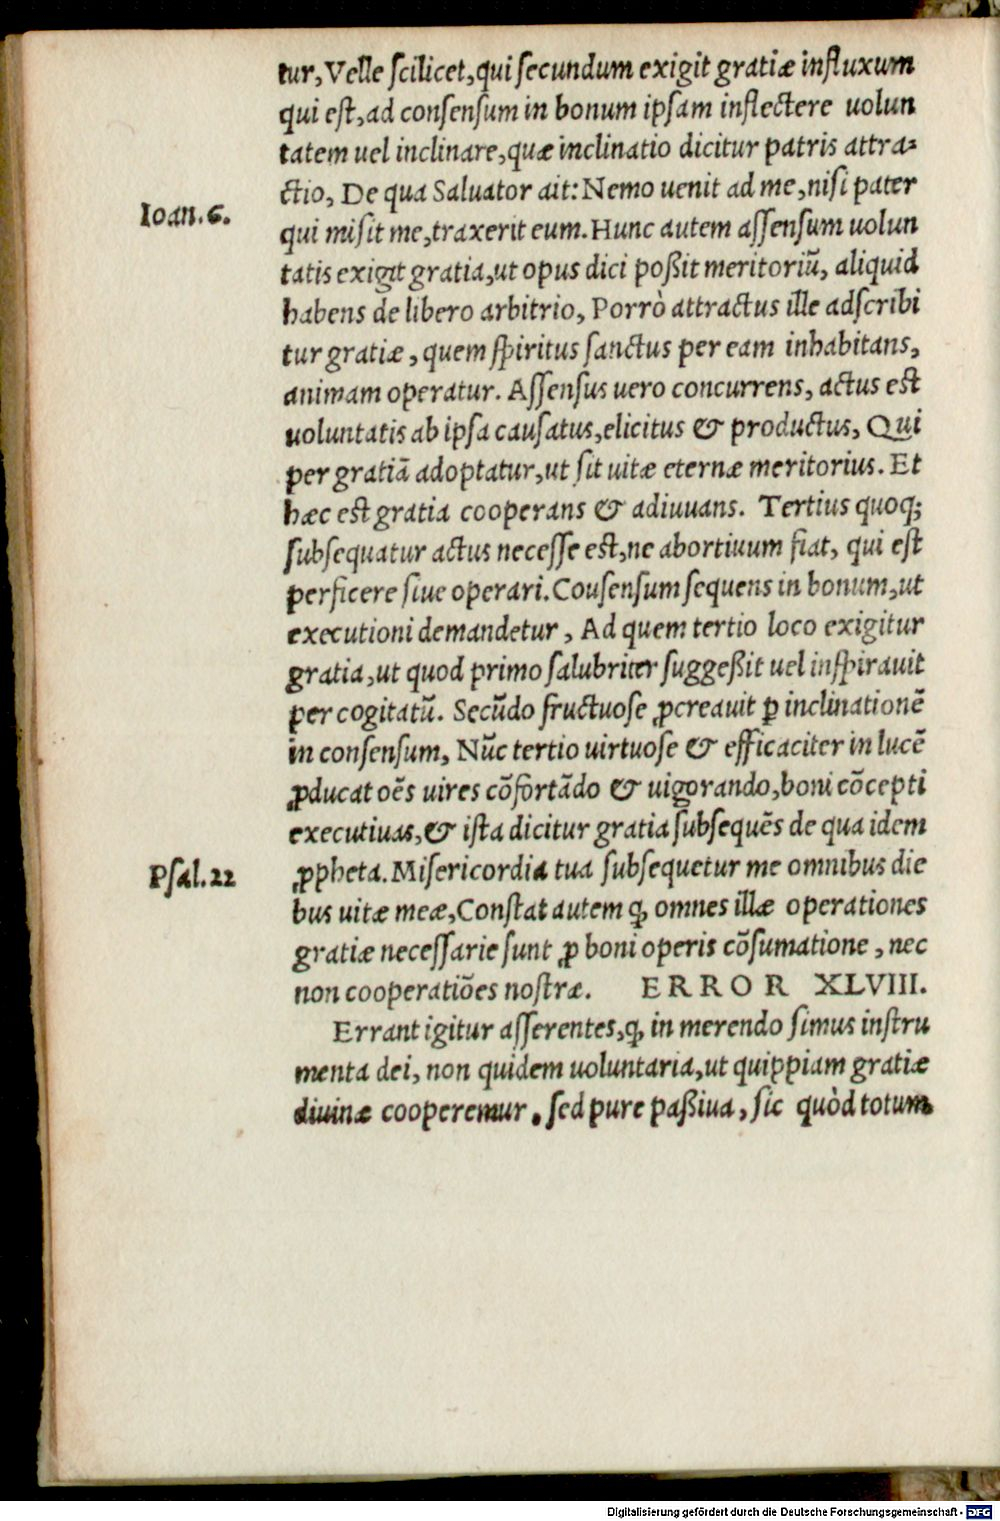 tur, Velle ſcilicet, qui ſecundum exigit gratiæ influxum
qui eſt, ad conſenſum in bonum ipſam inflectere uolun
tatem uel inclinare, quæ inclinatio dicitur patris attra⸗
ctio, De qua Saluator ait: Nemo uenit ad me, niſi pater
Ioan. 6.
qui miſit me, traxerit eum. Hunc autem aſſenſum uolun
tatis exigit gratia, ut opus dici poßit meritoriũ, aliquid
habens de libero arbitrio, Porrò attractus ille adſcribi
tur gratiæ, quem ſpiritus ſanctus per eam inhabitans,
animam operatur. Aſſenſus uero concurrens, actus eſt
uoluntatis ab ipſa cauſatus, elicitus & productus, Qui
per gratiã adoptatur, ut ſit uitæ eternæ meritorius. Et
hæc eſt gratia cooperans & adiuuans. Tertius quoq;
ſubſequatur actus neceſſe eſt, ne abortiuum fiat, qui eſt
perficere ſiue operari. Couſenſum ſequens in bonum, ut
executioni demandetur, Ad quem tertio loco exigitur
gratia, ut quod primo ſalubriter ſuggeßit uel inſpirauit
per cogitatũ. Secũdo fructuoſe ꝓcreauit ꝑ inclinationẽ
in conſenſum, Nũc tertio uirtuoſe & efficaciter in lucẽ
ꝓducat oẽs uires cõfortãdo & uigorando, boni cõcepti
executiuas, & iſta dicitur gratia ſubſequẽs de qua idem
Pſal. 22
ꝓpheta. Miſericordia tua ſubſequetur me omnibus die
bus uitæ meæ, Conſtat autem ꝙ omnes illæ operationes
gratiæ neceſſarie ſunt ꝓ boni operis cõſumatione, nec
non cooperatiões noſtræ. ERROR XLVIII.
Errant igitur aſſerentes, ꝙ in merendo ſimus inſtru
menta dei, non quidem uoluntaria, ut quippiam gratiæ
diuinæ cooperemur, ſed pure paßiua, ſic quòd totum
Digitalisierung gefördert durch die Deutsche Forschungsgemeinschaft - DFG